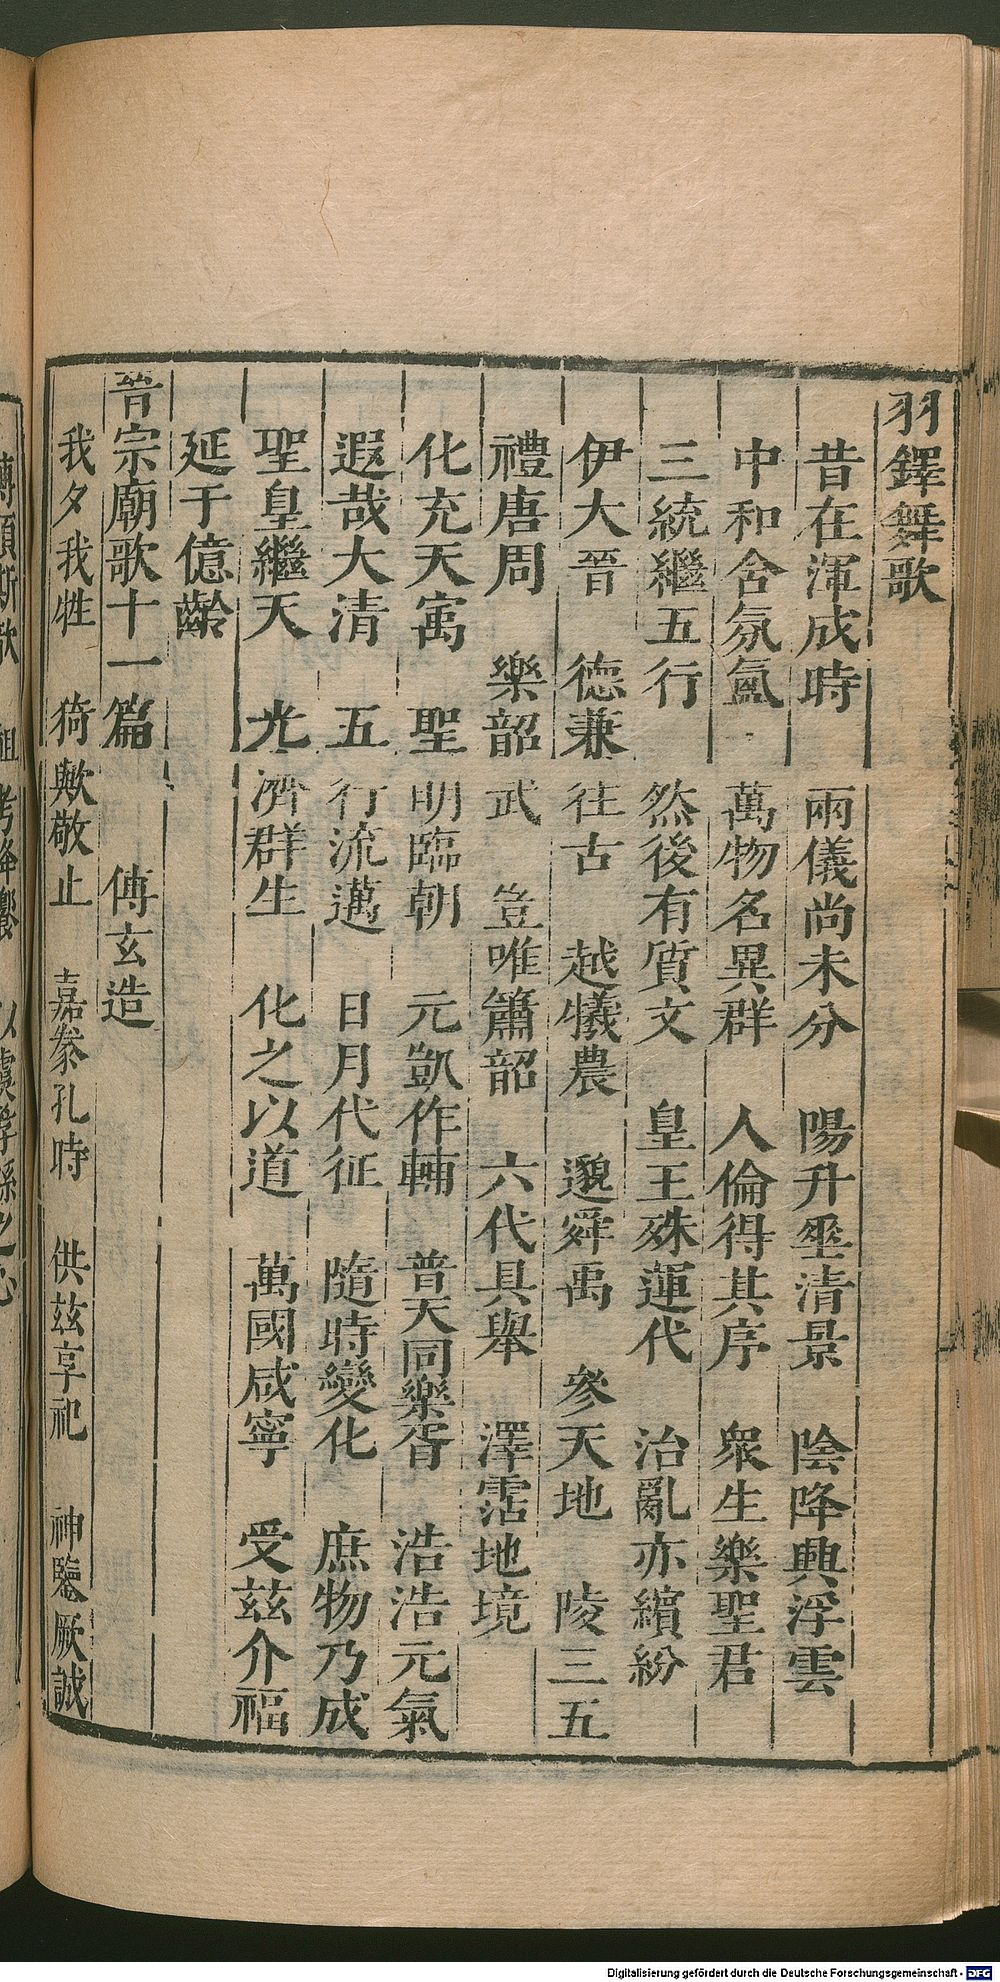 羽鐸舞歌
昔在渾成時 兩儀尚未分 陽升垂清景 陰降興浮雲
中和含氛氳 萬物各異群 人倫得其序 衆生樂聖君
三統繼五行 然後有質文 皇王殊運代 治亂亦繽紛
伊大晉 德兼往古 越犧農 邈舜禹 參天地 陵三五
禮唐周 樂韶武 豈唯簫韶 六代具舉 澤霑地境
化充天寓 聖明臨朝 元凱作輔 普天同樂胥 浩浩元氣
遐哉大清 五行流邁 日月代征 隨時變化 庶物乃成
聖皇繼天 光濟群生 化之以道 萬國咸寧 受茲介福
延于億齡
晉宗廟歌十一篇 傅玄造
我夕我牲 猗歟敬止 嘉豢孔時 供茲享祀 神鑒厥誠
祖考降饗 以虞孝孫之心
Digitalisierung gefördert durch die Deutsche Forschungsgemeinschaft - DFG